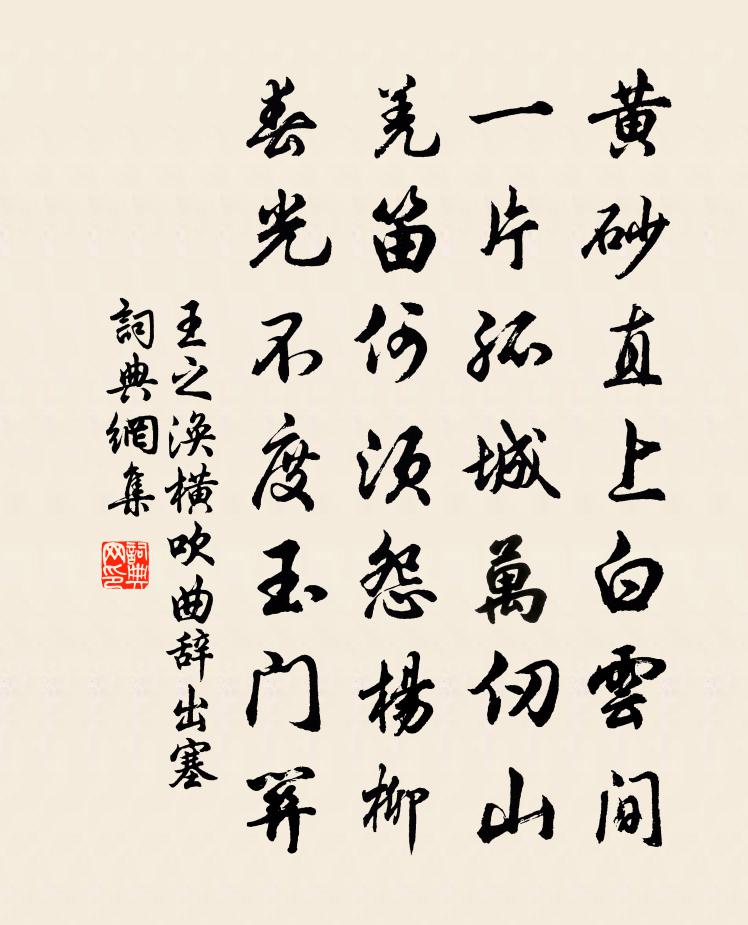 黄砂直上白雲间
一片孤城萬仞山
羌笛何須怨楊柳
春光不度玉门関
王之渙橫吹曲辞出塞
詞典網集
詞典网印